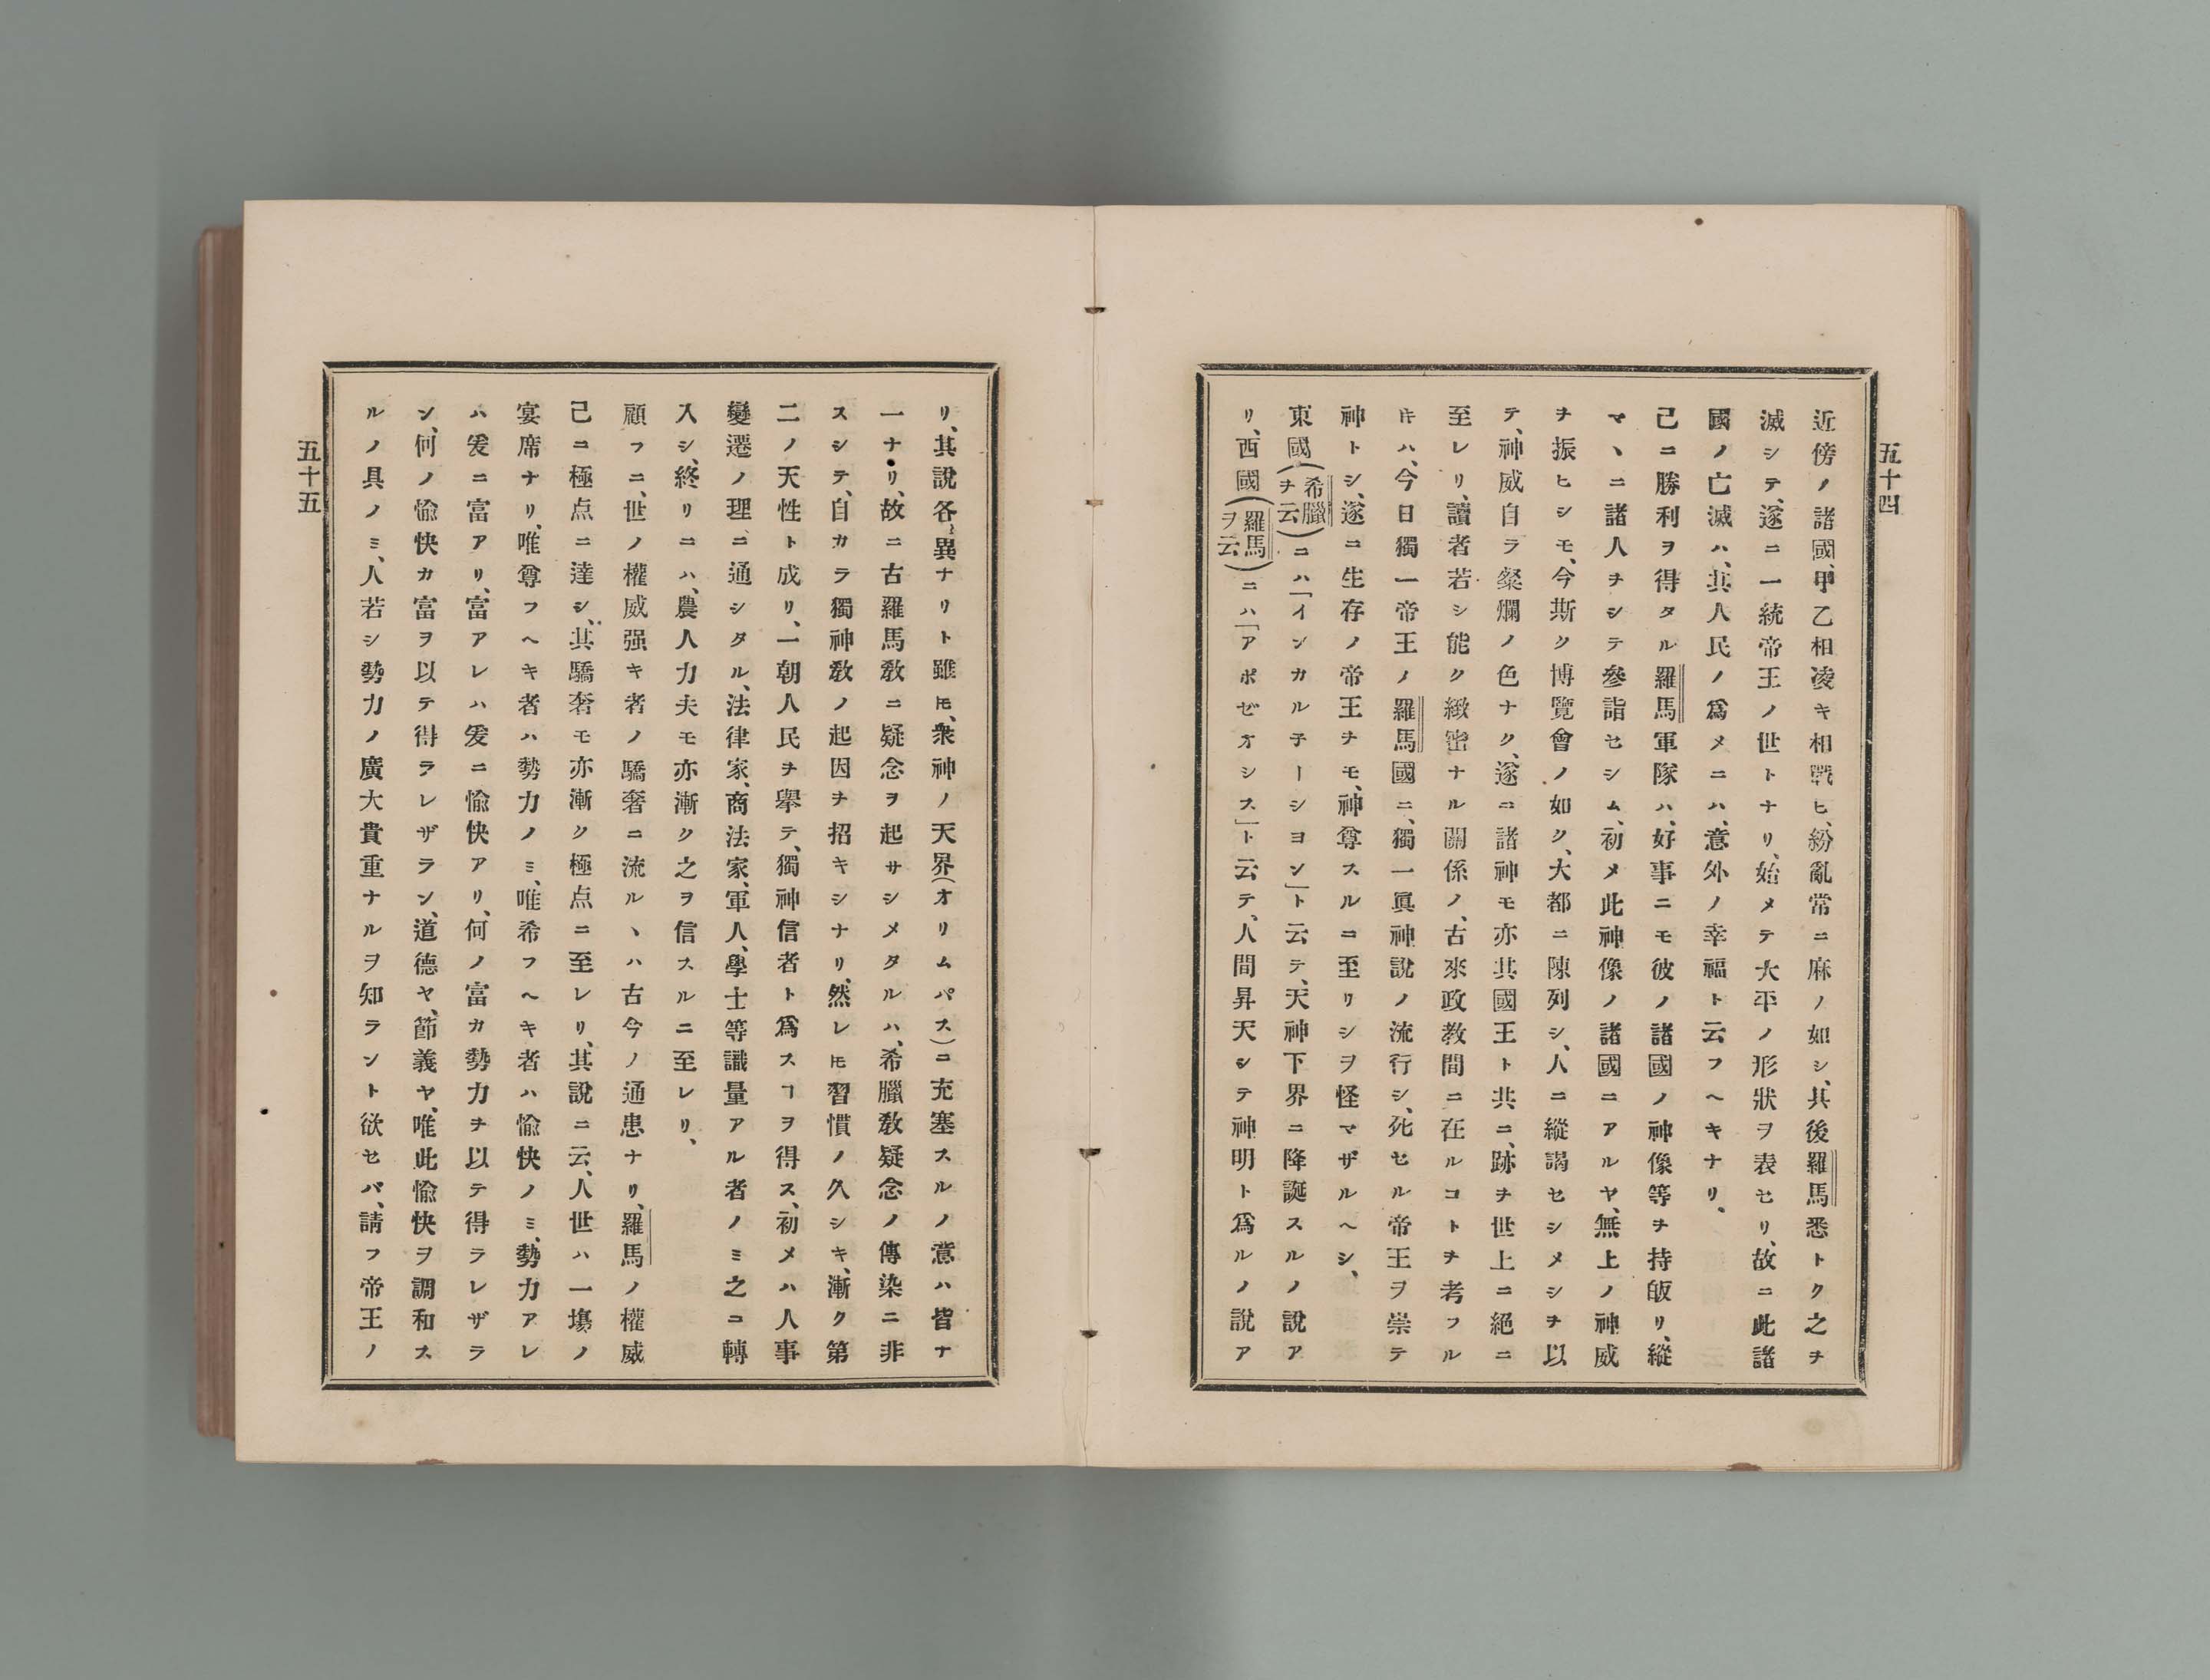 五十四
近傍ノ諸國、甲乙相凌キ相戰ヒ、紛亂常ニ麻ノ如シ、其後羅馬悉トク之ヲ
滅シテ、遂ニ一統帝王ノ世トナリ、始メテ大平ノ形狀ヲ表セリ、故ニ此諸
國ノ亡滅ハ、其人民ノ爲メニハ、意外ノ幸福ト云フヘキナリ、
己ニ勝利ヲ得タル羅馬軍隊ハ、好事ニモ彼ノ諸國ノ神像等ヲ持皈リ、縱
マヽニ諸人ヲシテ參詣セシム、初メ此神像ノ諸國ニアルヤ、無上ノ神威
ヲ振ヒシモ、今斯ク博覽會ノ如ク、大都ニ陳列シ、人ニ縱謁セシメシヲ以
テ、神威自ラ粲爛ノ色ナク、遂ニ諸神モ亦其國王ト共ニ、跡ヲ世上ニ絕ニ
至レリ、讀者若シ能ク緻密ナル關係ノ、古來政教間ニ在ルコトヲ考フル
ḱハ、今日獨一帝王ノ羅馬國ニ、獨一眞神說ノ流行シ、死セル帝王ヲ崇テ
神トシ、遂ニ生存ノ帝王ヲモ、神尊スルニ至リシヲ怪マザルヘシ、
東國(希臘ヲ云)ニハ「インカルチーシヨン」ト云テ、天神下界ニ降誕スルノ說ア
リ、西國(羅馬ヲ云)ニハ「アポゼオシス」ト云テ、人間昇天シテ神明ト爲ルノ說ア
リ、其說各〻異ナリト雖モ、衆神ノ天界(オリムパス)ニ充塞スルノ意ハ皆ナ
一ナリ、故ニ古羅馬教ニ疑念ヲ起サシメタルハ、希臘教疑念ノ傳染ニ非
スシテ、自カラ獨神教ノ起因ヲ招キシナリ、然レ𪜈習慣ノ久シキ、漸ク第
二ノ天性ト成リ、一朝人民ヲ擧テ、獨神信者ト爲スヿヲ得ス、初メハ人事
變遷ノ理ニ通シタル、法律家、商法家、軍人、學士等識量アル者ノミ之ニ轉
入シ、終リニハ、農人力夫モ亦漸ク之ヲ信スルニ至レリ、
顧フニ、世ノ權威强キ者ノ驕奢ニ流ルヽハ古今ノ通患ナリ、羅馬ノ權威
己ニ極点ニ達シ、其驕奢モ亦漸ク極点ニ至レリ、其說ニ云、人世ハ一塲ノ
宴席ナリ、唯尊フヘキ者ハ勢力ノミ、唯希フヘキ者ハ愉快ノミ、勢力アレ
ハ爰ニ富アリ、富アレハ爰ニ愉快アリ、何ノ富カ勢力ヲ以テ得ラレザラ
ン、何ノ愉快カ富ヲ以テ得ラレザラン、道德ヤ、節義ヤ、唯此愉快ヲ調和ス
ルノ具ノミ、人若シ勢力ノ廣大貴重ナルヲ知ラント欲セバ、請フ帝王ノ
五十五